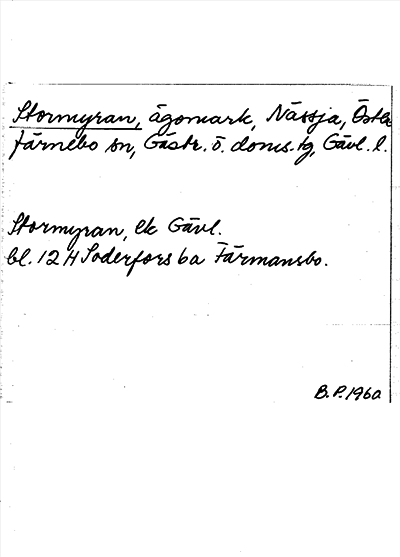 Stormyran, ägomark, Nässja, Öster
färnebo sn, Gästr. ö. doms. tg, Gävl. l.
Stormyran, ek Gävl.
bl. 12 H Söderfors 6a Färmansbo.
B.P. 1960